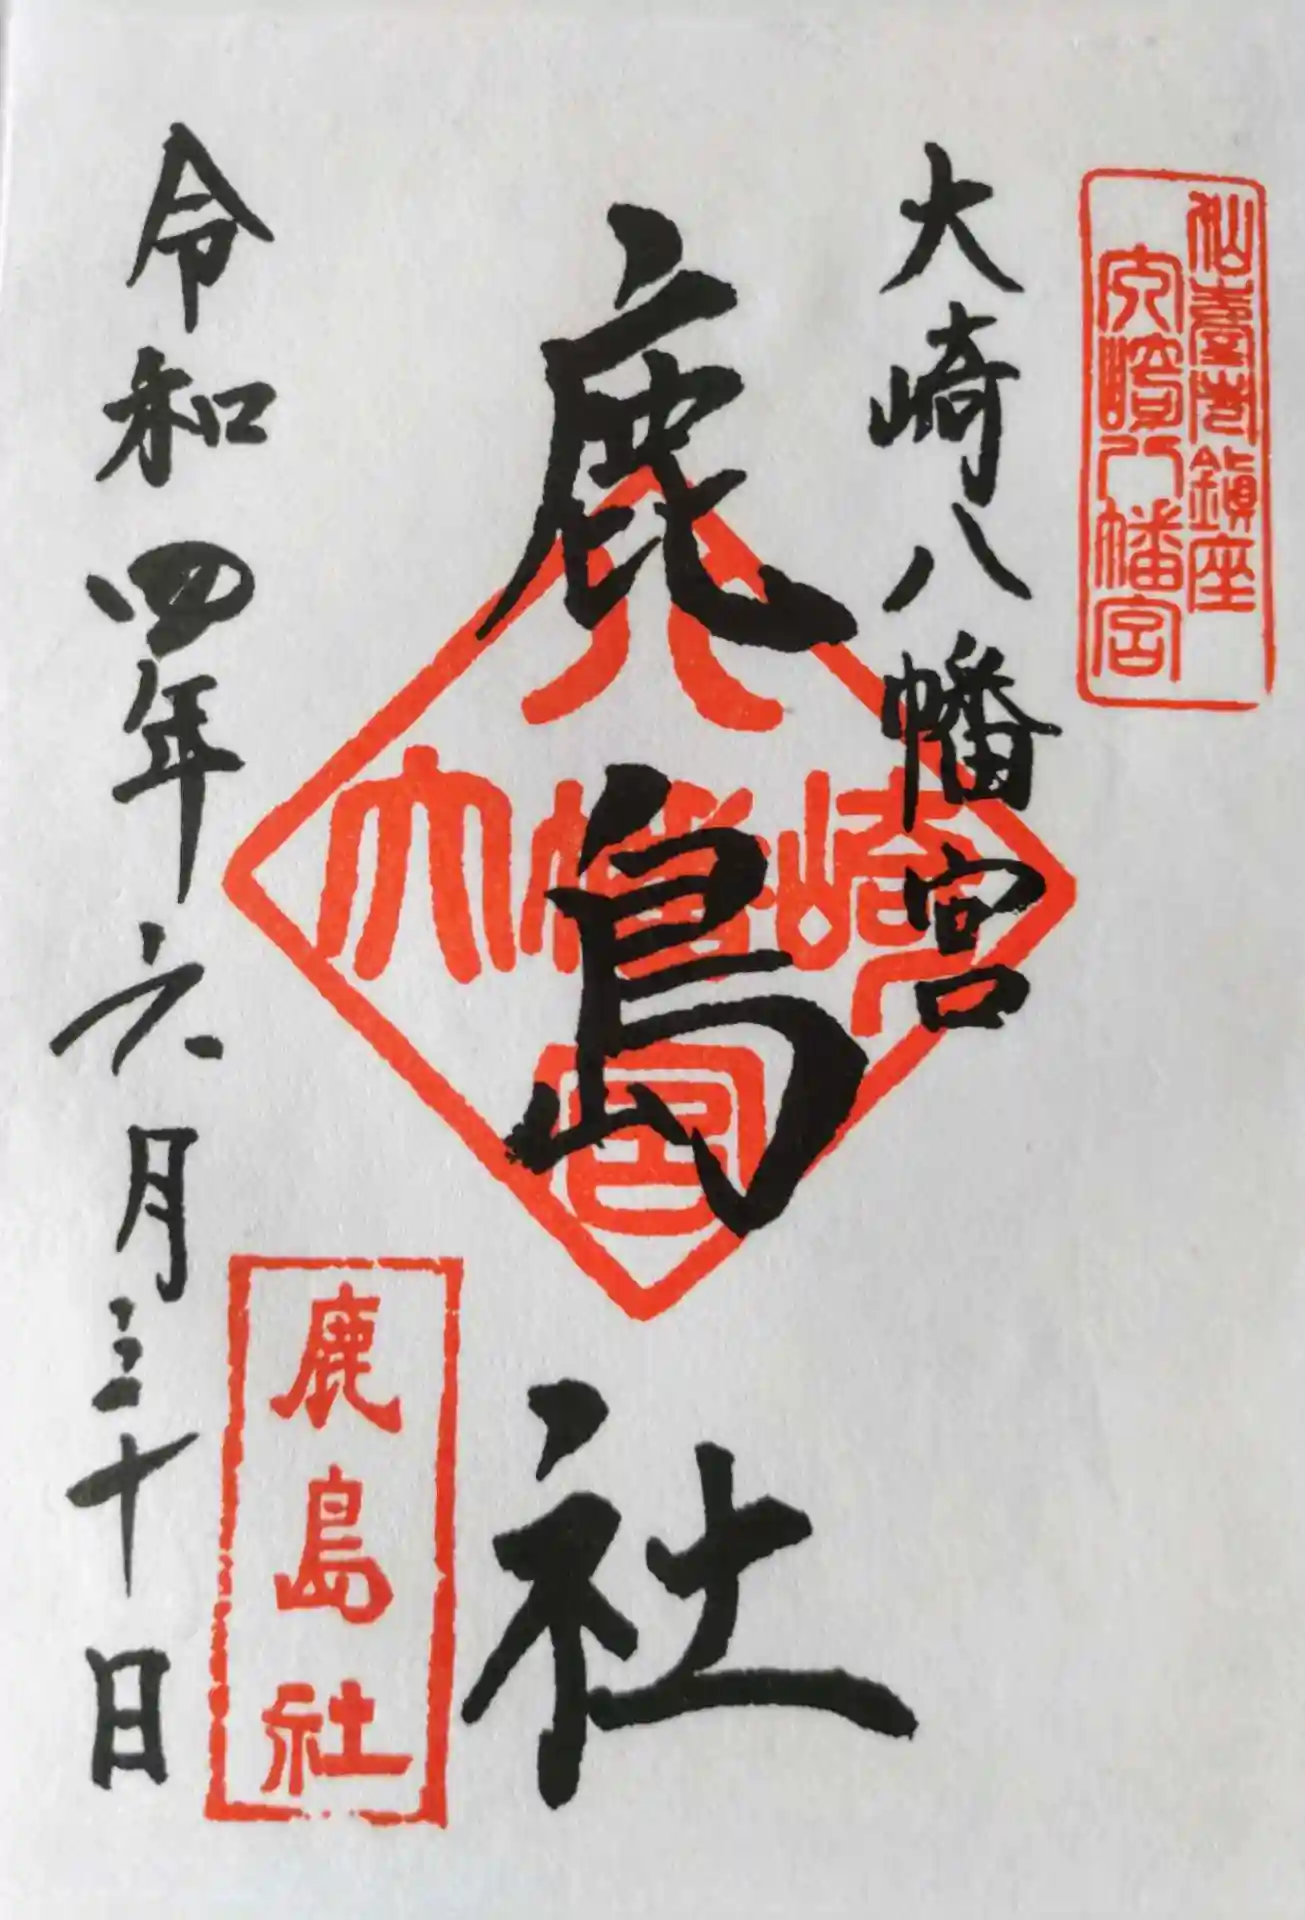 仙臺市鎮座
大崎八幡宮
大崎八幡宮
鹿島社
八
大幡崎
宮
鹿島社
令和四年六月三十日